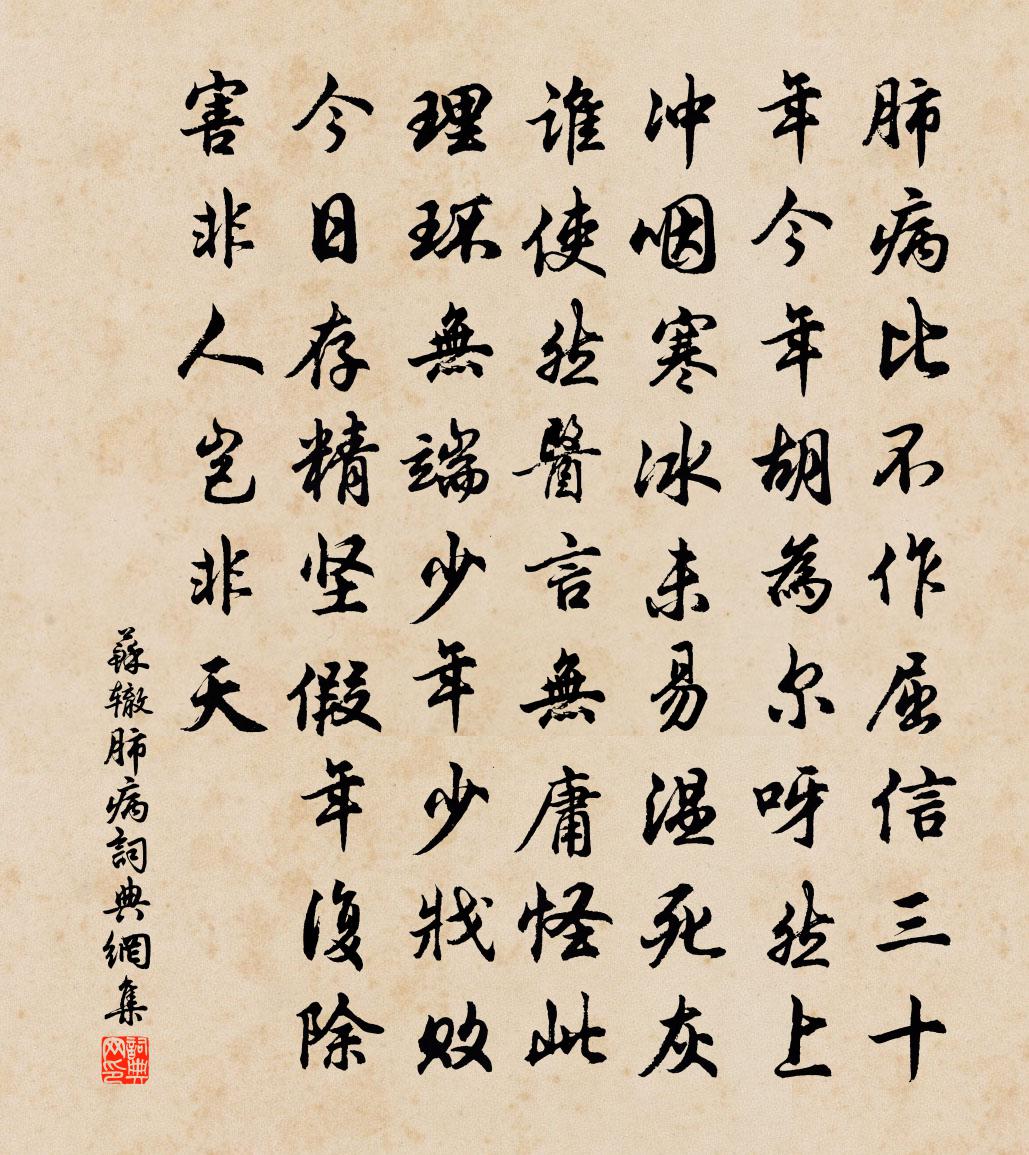 肺病比不作屈信三十
年今年胡為尔呀然上
沖咽寒冰未易温死灰
谁使然醫言無庸怪此
理环無端少年少戕敗
今日存精坚假年復除
害非人岂非天
蘇辙肺病詞典網集
詞典网印